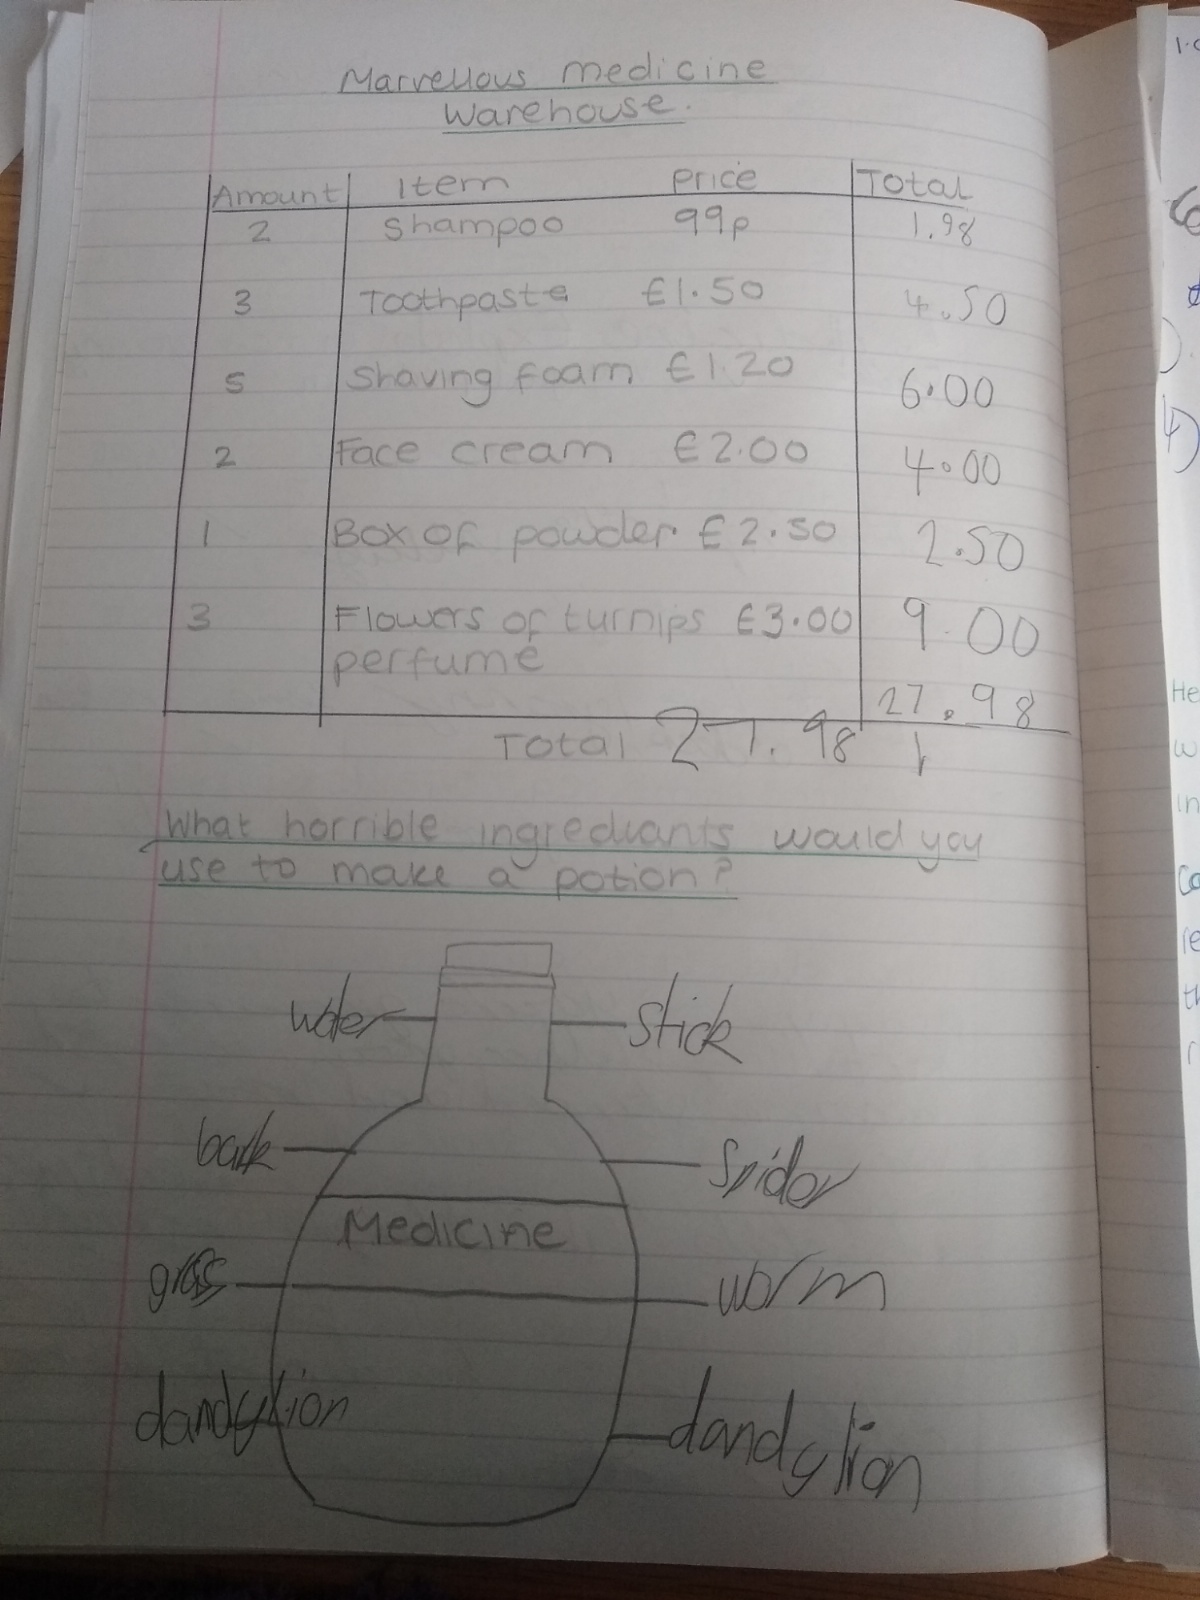 Marvellous medicine
Warehouse.
Amount Item Price Total
2 Shampoo 99p 1.98
3 Toothpaste €1.50 4.50
5 Shaving foam €1.20 6.00
2 Face cream €2.00 4.00
1 Box of powder €2.50 2.50
3 Flowers of turnips €3.00 9.00
perfume
27.98
Total 27.98 1
What horrible ingrediants would you
use to make a potion?
water stick
bark Spider
Medicine
grass worm
dandylion dandylion
He
w
in
Co
re
th